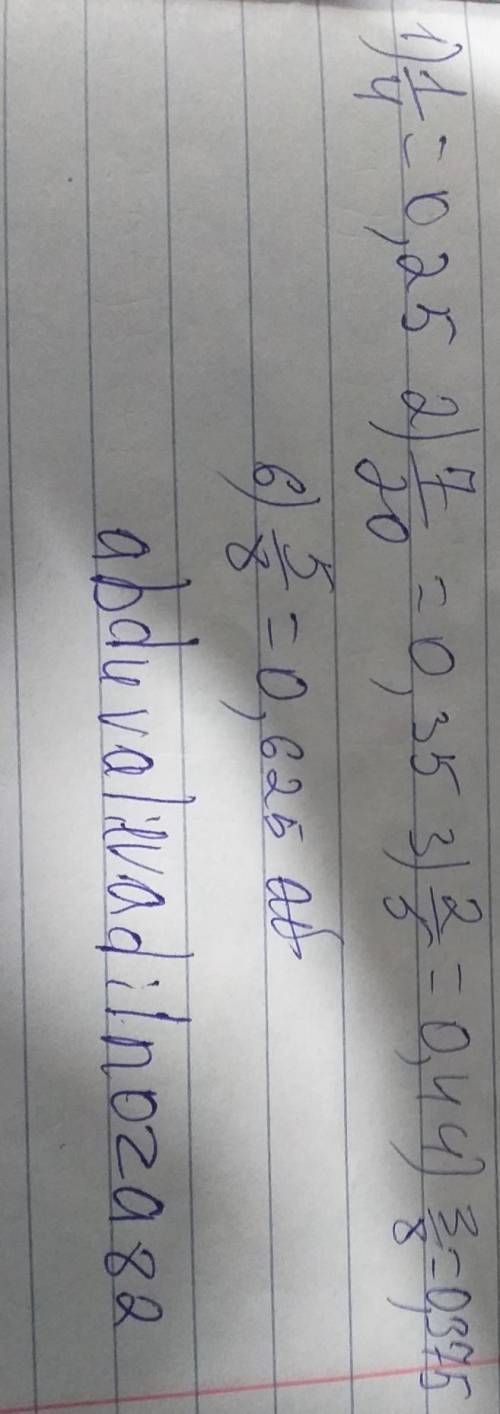 1) 1/4 = 0,25 2) 7/20 = 0,35 3) 2/5 = 0,4 4) 3/8 = 0,375
6) 5/8 = 0,625
abduvalilvadilnoza82